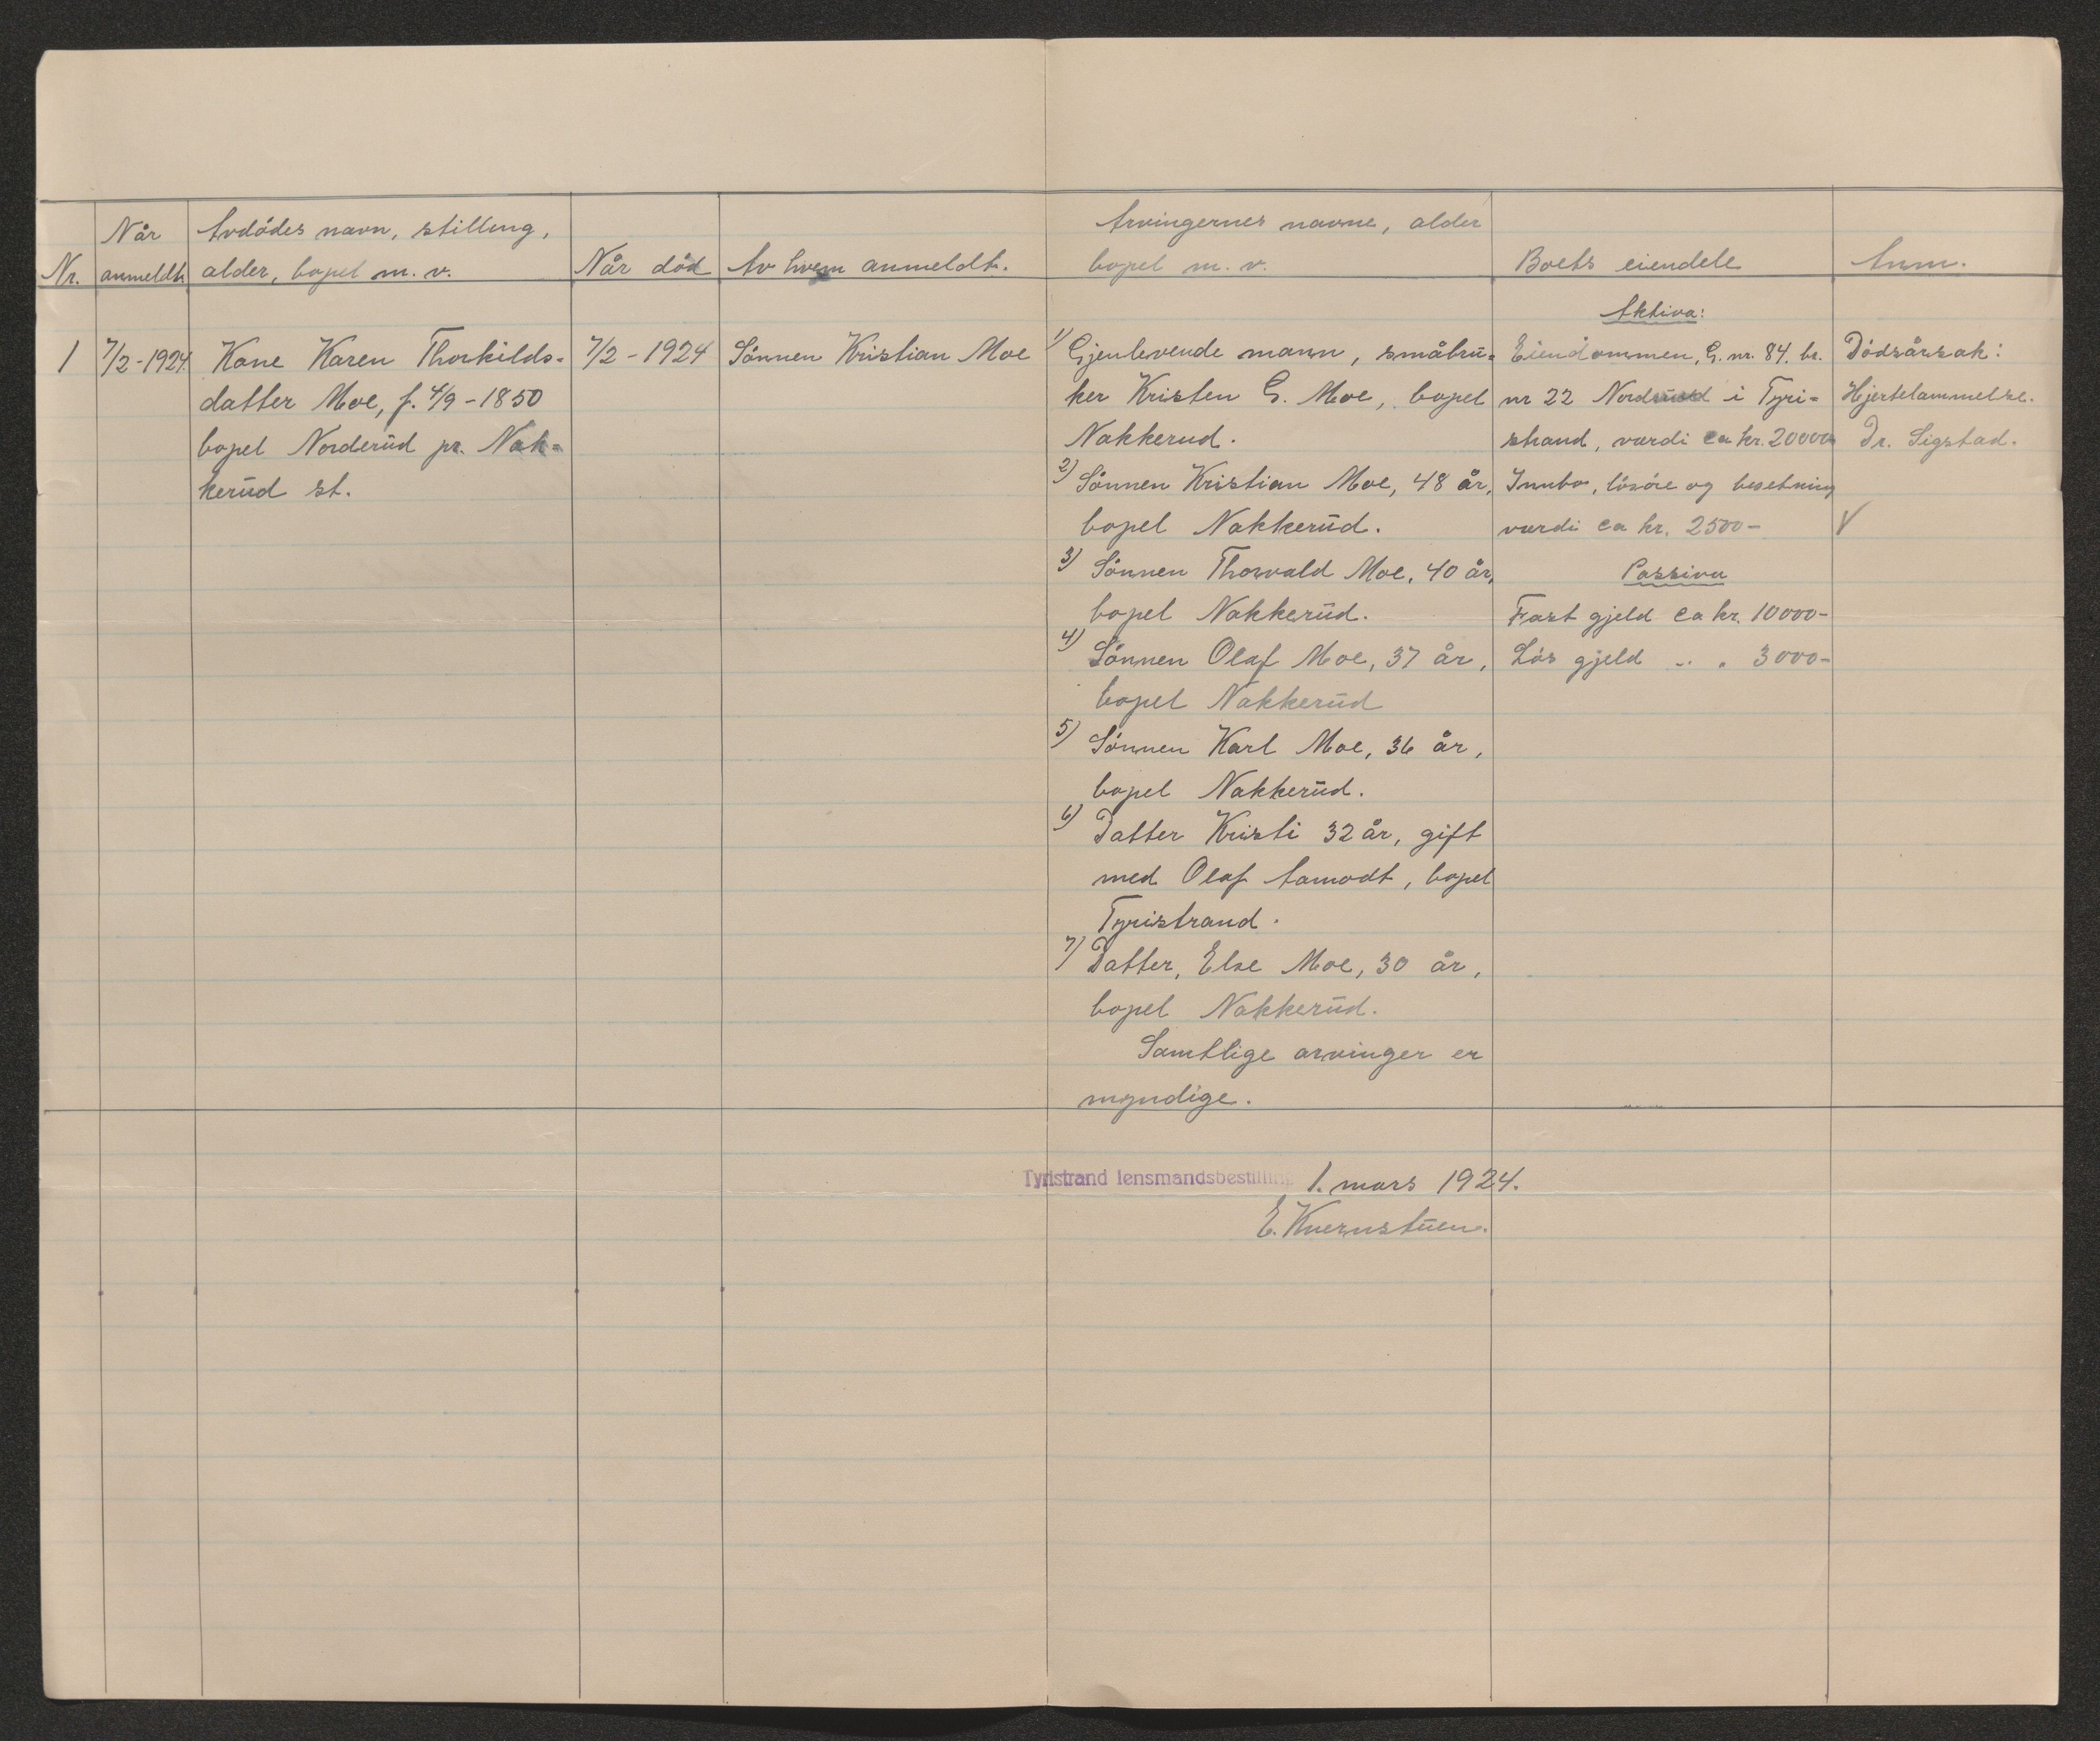 Nr.
Når
anmeldt
Avdødes navn, stilling,
alder, bopel m. v.
Når død
Av hvem anmeldt.
Arvingernes navne, alder
bopel m. v.
Boets eiendele
Anm.
1
7/2-1924.
Kone Karen Thorkilds-
datter Moe, f. 4/9-1850
bopel Norderud pr. Nak-
kerud st.
7/2-1924
Sønnen Kristian Moe
1) Gjenlevende mann, småbru-
ker Kristen G. Moe, bopel
Nakkerud.
2) Sønnen Kristian Moe, 48 år,
bopel Nakkerud.
3) Sønnen Thorvald Moe, 40 år,
bopel Nakkerud.
4) Sønnen Olaf Moe, 37 år,
bopel Nakkerud
5) Sønnen Karl Moe, 36 år,
bopel Nakkerud.
6) Datter Kristi 32 år, gift
med Olaf Aamodt, bopel
Tyristrand.
7) Datter, Else Moe, 30 år,
bopel Nakkerud.
Samtlige arvinger er
myndige.
Aktiva:
Eiendommen, G. nr. 84. br.
nr 22 i Tyri-
strand, værdi ca kr. 20000-
Innbo, løsøre og besetning
værdi ca kr. 2500-
Passiva
Fast gjeld ca kr. 10000-
Løs gjeld -. . 3000-
Dødsårsak:
Hjertelammelse.
Dr. Sigstad.
V
Tyristrand lensmandsbestilling 1. mars 1924.
E. Kvernstuen.